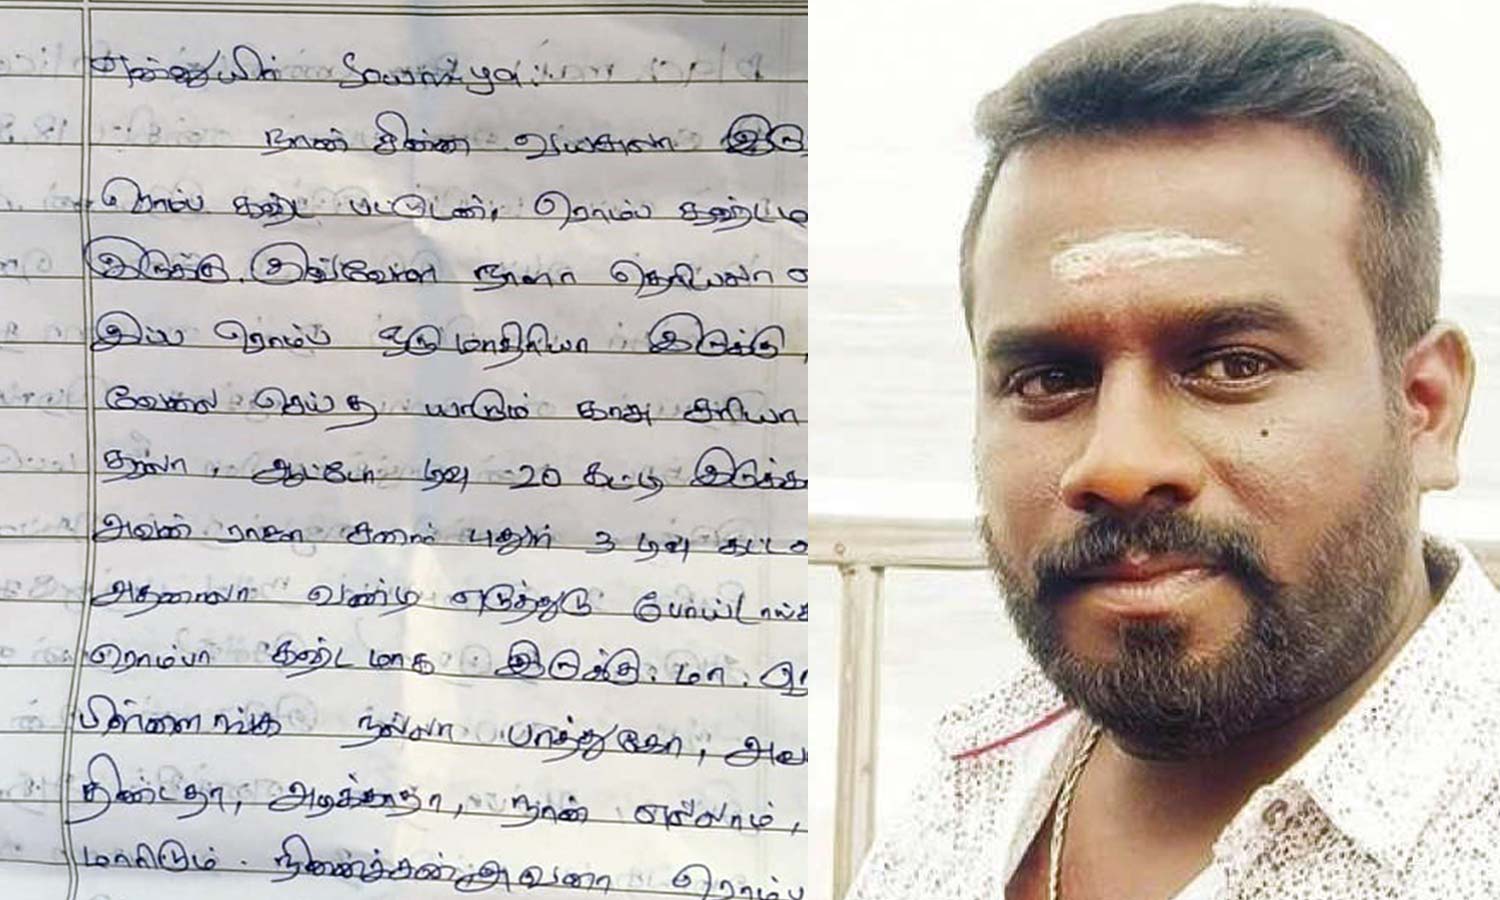 நான் சின்ன வயசுலா இரு
ரொம்ப கஷ்ட பட்டுடேன், ரொம்ப கஷ்டமா
இருக்கு. இவ்வேளா நாளா தெரியலா
இப்ப ரொம்ப ஒரு மாதிரியா இருக்கு,
வேலை செய்த யாரும் காசு சரியா
தரலா, ஆட்டோ டியு 20 கட்டி இருக்க
அவன் ராஜா சனம் புதுசு 3 டியு கட்ட
அதனாலா வண்டி எடுத்துடு போய்டாங்க
ரொம்பா கஷ்டமாக இருக்கு. மா.
பிள்ளைங்க நல்லா பாத்துகோ, அவ
திண்டதா, அடிக்காதா, நான் எல்லாம்,
மாரிடும். நினைச்சன் அவனா ரொம்ப